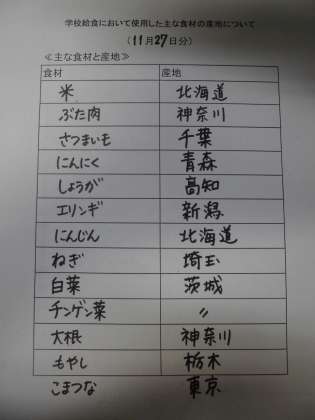 学校給食において使用した主な食材の産地について
(11月27日分)
≪主な食材と産地≫
食材 産地
米 北海道
ぶた肉 神奈川
さつまいも 千葉
にんにく 青森
しょうが 高知
エリンギ 新潟
にんじん 北海道
ねぎ 埼玉
白菜 茨城
チンゲン菜 〃
大根 神奈川
もやし 栃木
こまつな 東京